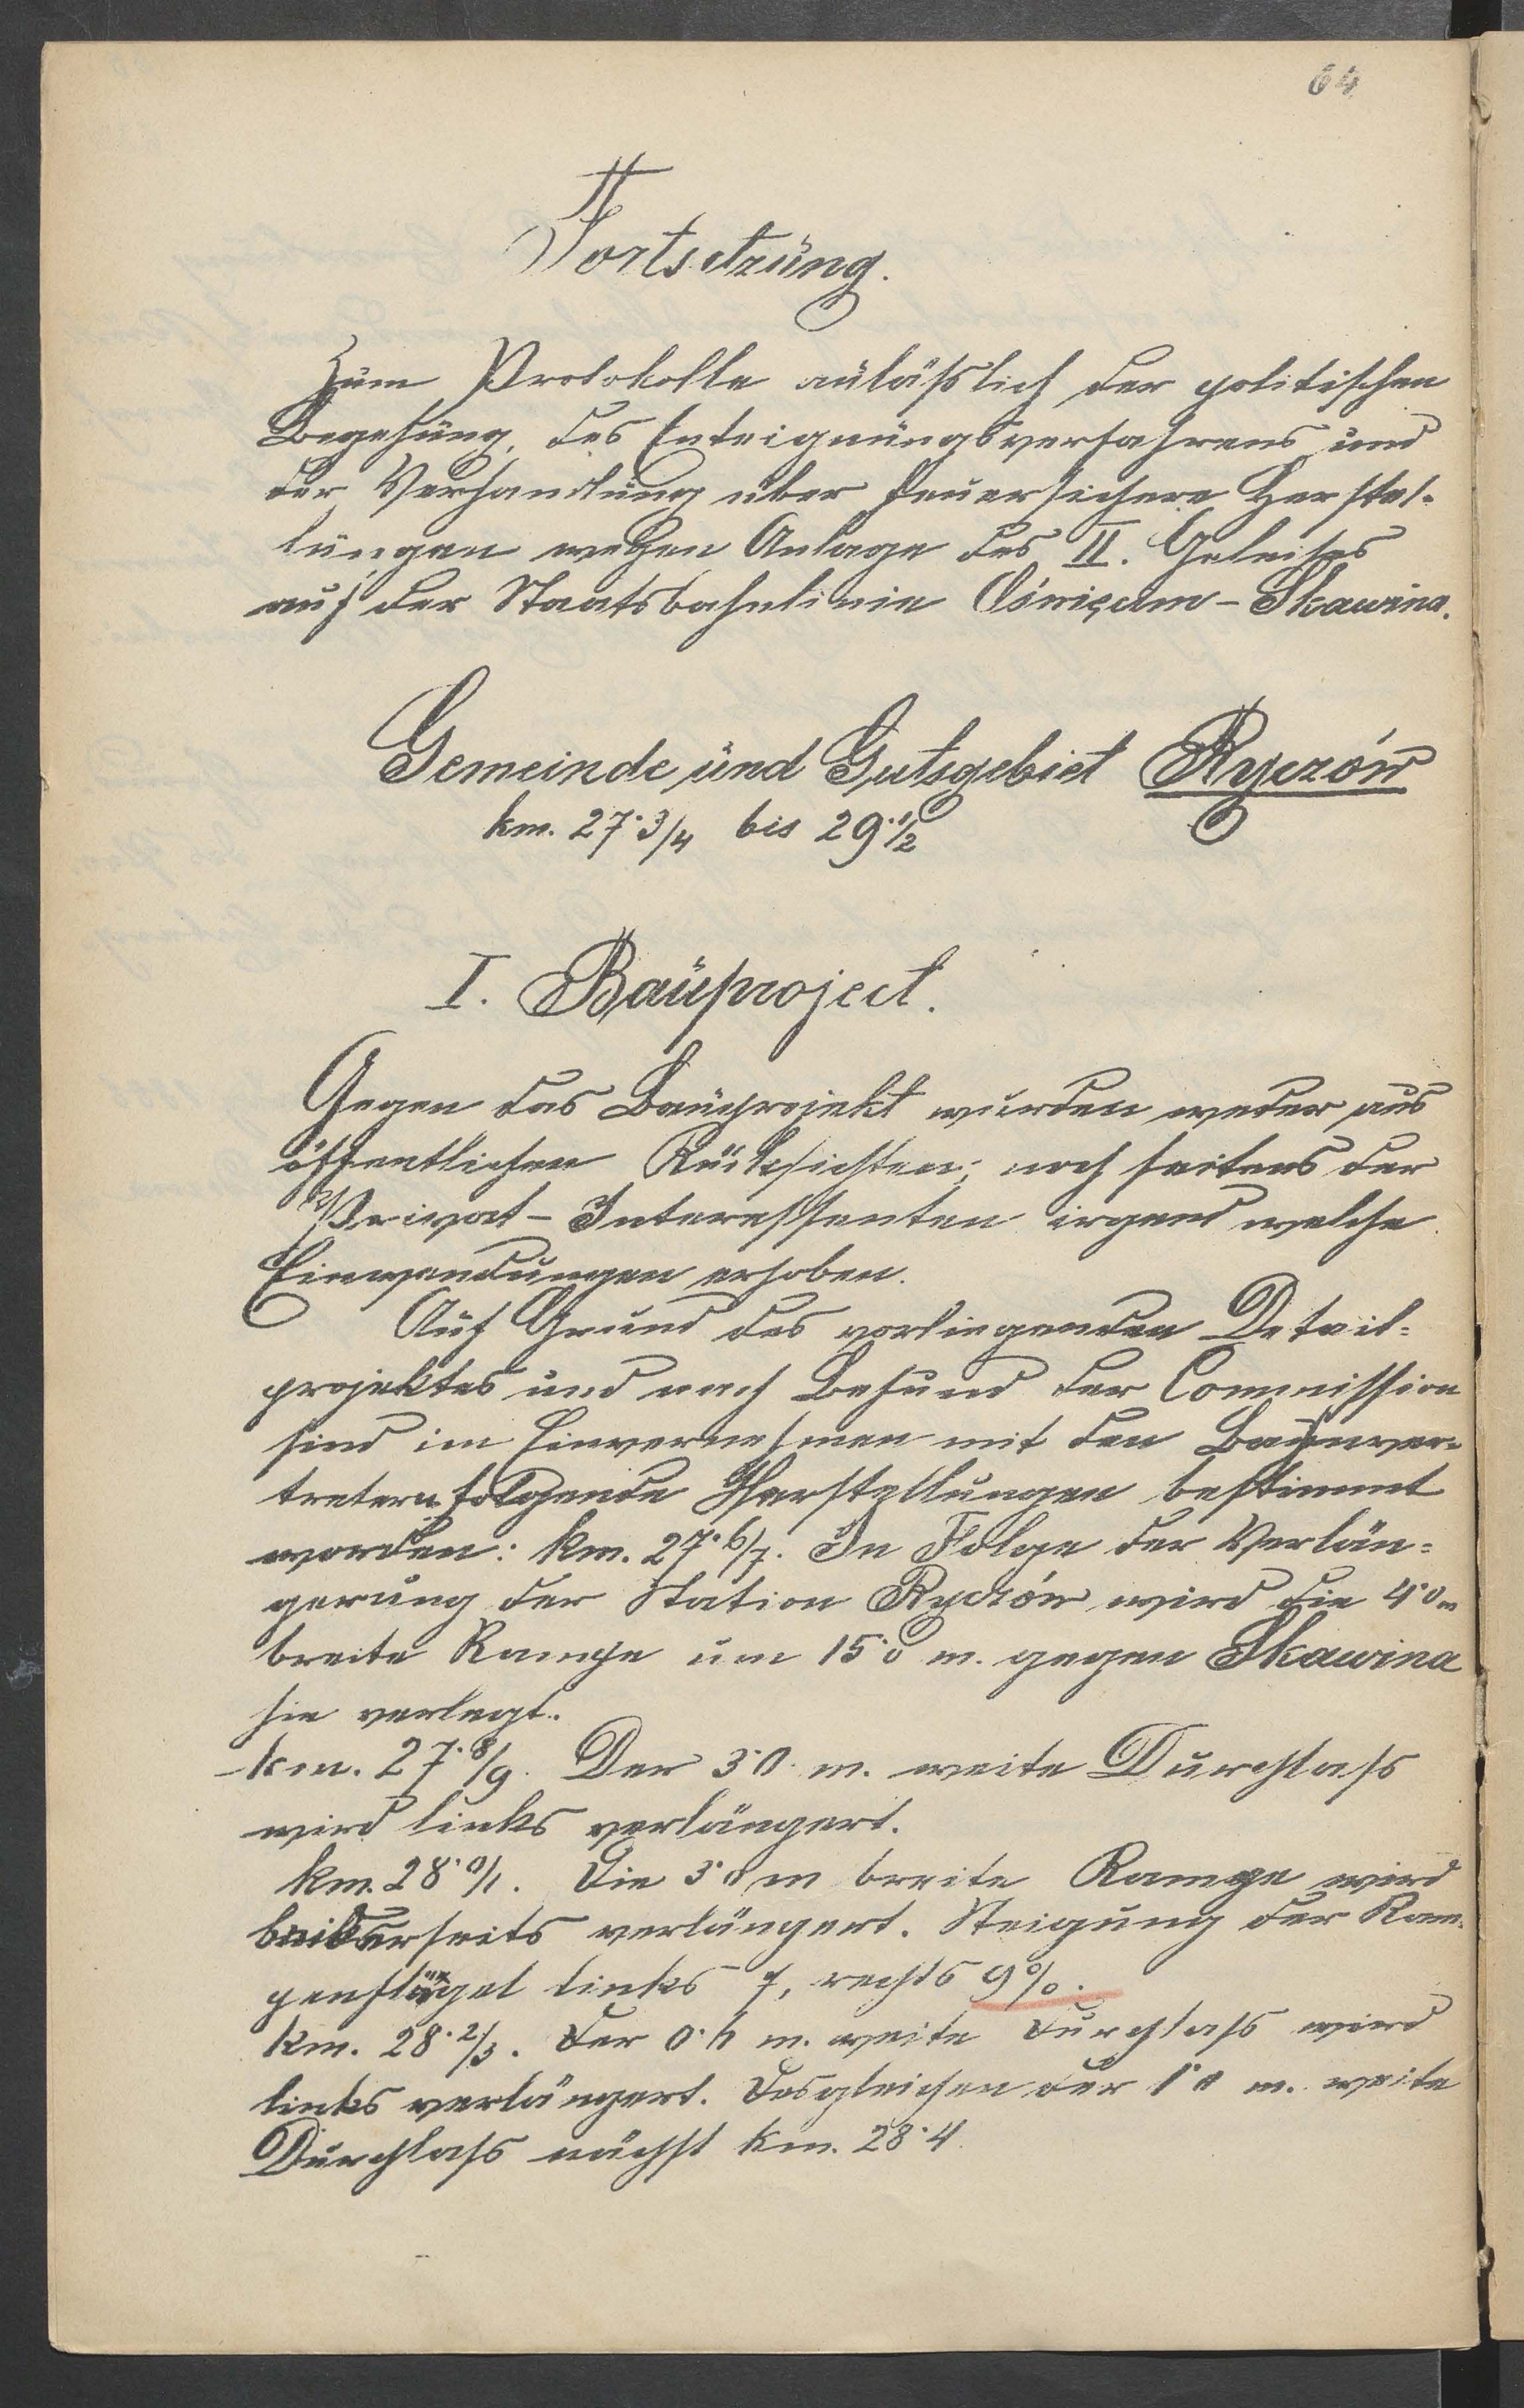 64
Fortsetzung.
Zum Protokolle anläßlich der politischen
Begehung, des Enteignungsverfahrens und
der Verhandlung über feuersichere Herstel-
lungen wegen Anlage des II. Geleises
auf der Staatsbahnlinie Oświęcim - Skawina.
Gemeinde und Gutsgebiet Ryczów
km. 27·3/4 bis 29·1/2
I. Bauproject.
Gegen das Bauprojekt wurden weder aus
öffentlichen Rücksichten, noch seitens der
Privat - Interessenten irgend welche
Einwendungen erhoben.
Auf Grund des vorliegenden Detail-
projektes und nach Befund der Commission
sind im Einvernehmen mit den Bahnver-
tretern folgende Herstellungen bestimmt
worden: km. 27·6/7. In Folge der Verlän-
gerung der Station Ryczów wird die 4·0 m
breite Rampe um 15·0 m. gegen Skawina
hin verlegt.
km. 27·8/9. Der 3·0 m. weite Durchlass
wird links verlängert.
km. 28·0/1. Die 3·0 m breite Rampe wird
beiderseits verlängert. Steigung der Ram-
penflügel links 7, rechts 9%.
km. 28·2/3. Der 0·6 m. weite Durchlass wird
links verlängert. Desgleichen der 1·0 m. weite
Durchlass nächst km. 28·4.